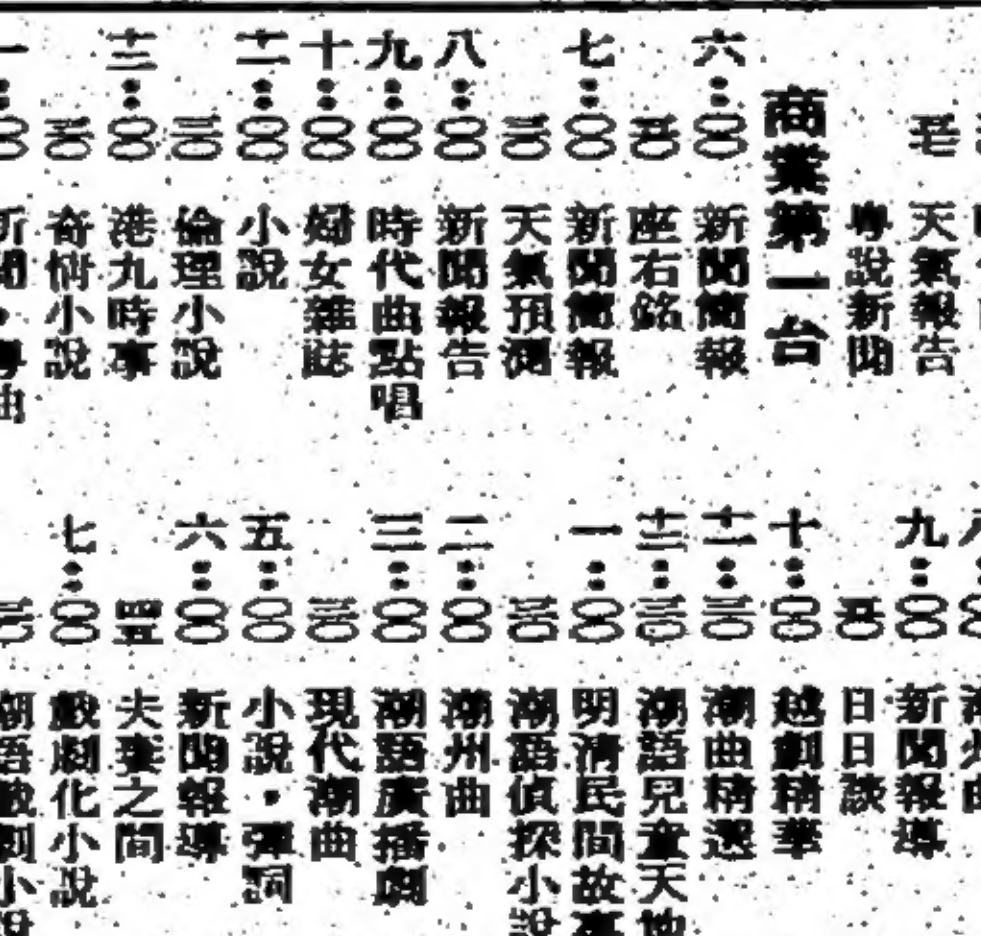 天氣報告
粵說新聞
商業第一台
六：〇〇 新聞簡報
座右銘
七：〇〇 新聞簡報
三〇 天氣預測
八：〇〇 新聞報告
九：〇〇 時代曲點唱
十：〇〇 婦女雜誌
十一：〇〇 小說
三〇 倫理小說
十二：〇〇 港九時事
奇情小說
一：〇〇 新聞・粵曲
九：〇〇 新聞報導
日日談
十：〇〇 越劇精華
十一：三〇 潮曲精選
十二：三〇 潮語兒童天地
一：〇〇 明清民間故事
三〇 潮語偵探小說
二：〇〇 潮州曲
三：〇〇 潮語廣播劇
三〇 現代潮曲
五：〇〇 小說・彈詞
六：〇〇 新聞報導
四五 夫妻之間
七：〇〇 戲劇化小說
三〇 潮語戲劇小說